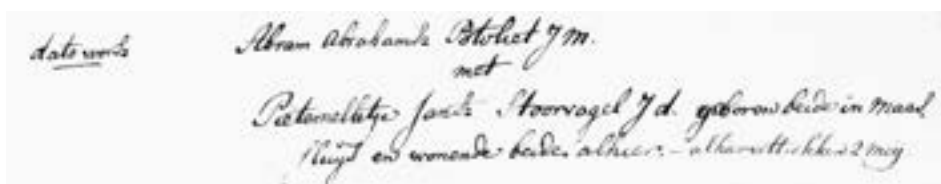 dato ... Abram Abrahamsz Stoliet J m.
met
Pieternelletje Jansz Stoorvogel J d. geboren beide in Maas
sluijs en wonende beide alhier. - alhier getrokken 2 meij